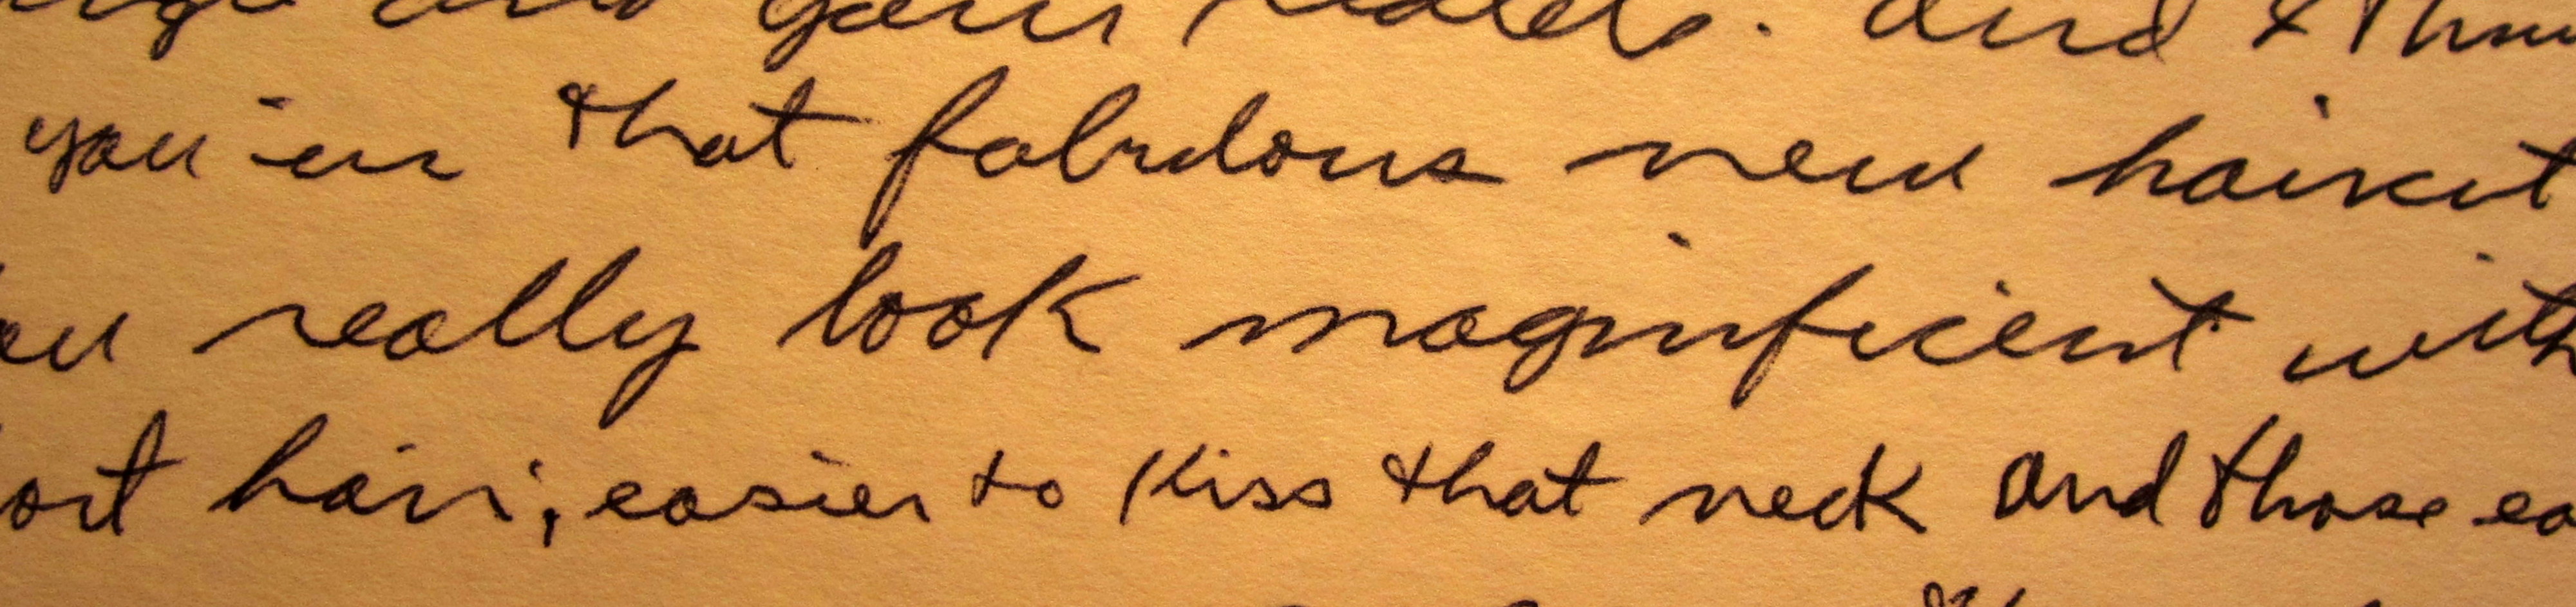 and your And I
you in that fabulous new haircut
really look magnificent with
hair, easier to kiss that neck and those